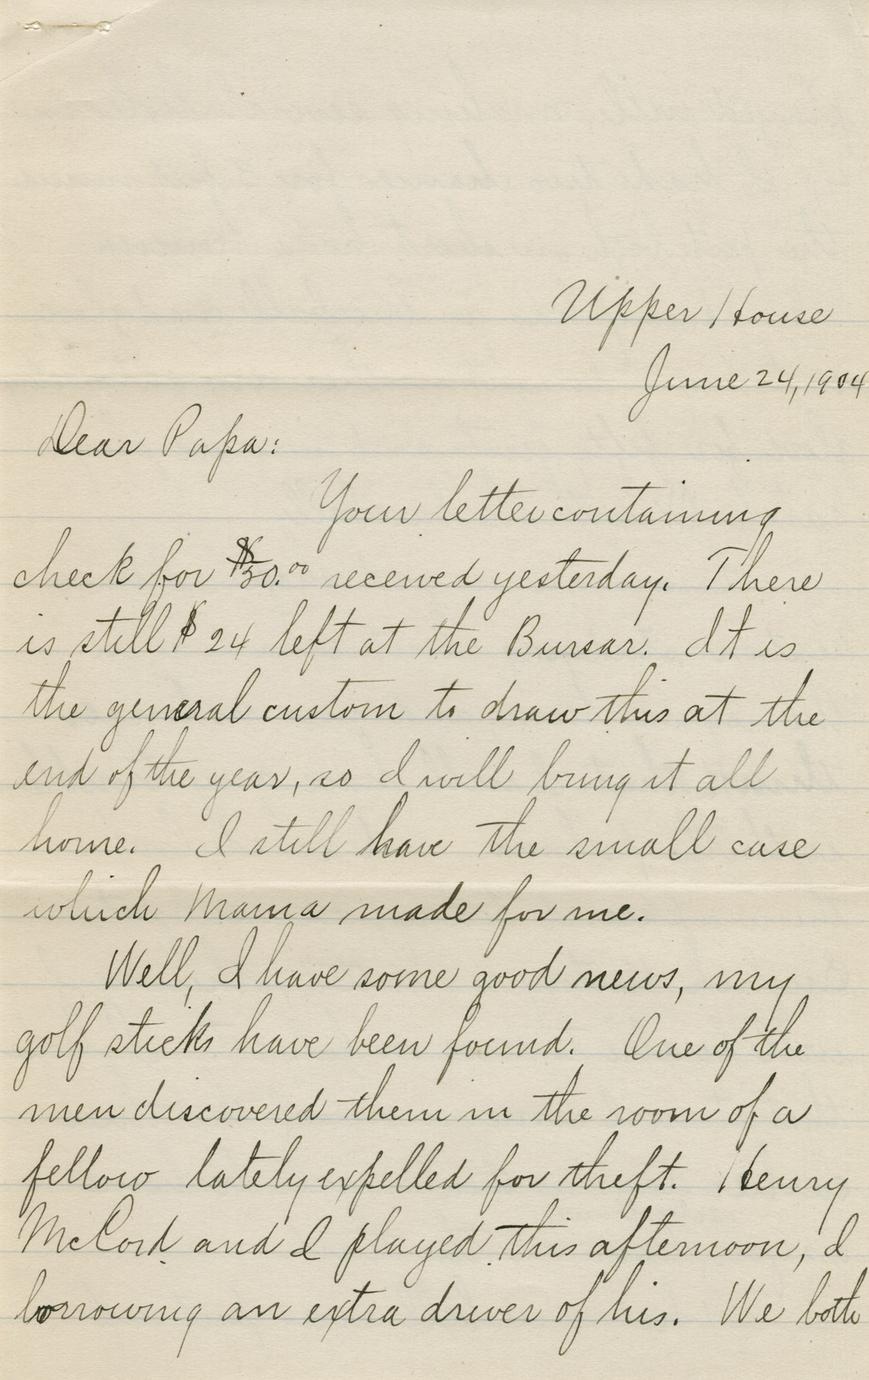 Upper House
June 24, 1904
Dear Papa:
Your letter containing
check for $30.00 received yesterday. There
is still $24 left at the Bursar. It is
the general custom to draw this at the
end of the year, so I will bring it all
home. I still have the small case
which Mama made for me.
Well, I have some good news, my
golf sticks have been found. One of the
men discovered them in the room of a
fellow lately expelled for theft. Henry
McCord and I played this afternoon, I
borrowing an extra driver of his. We both